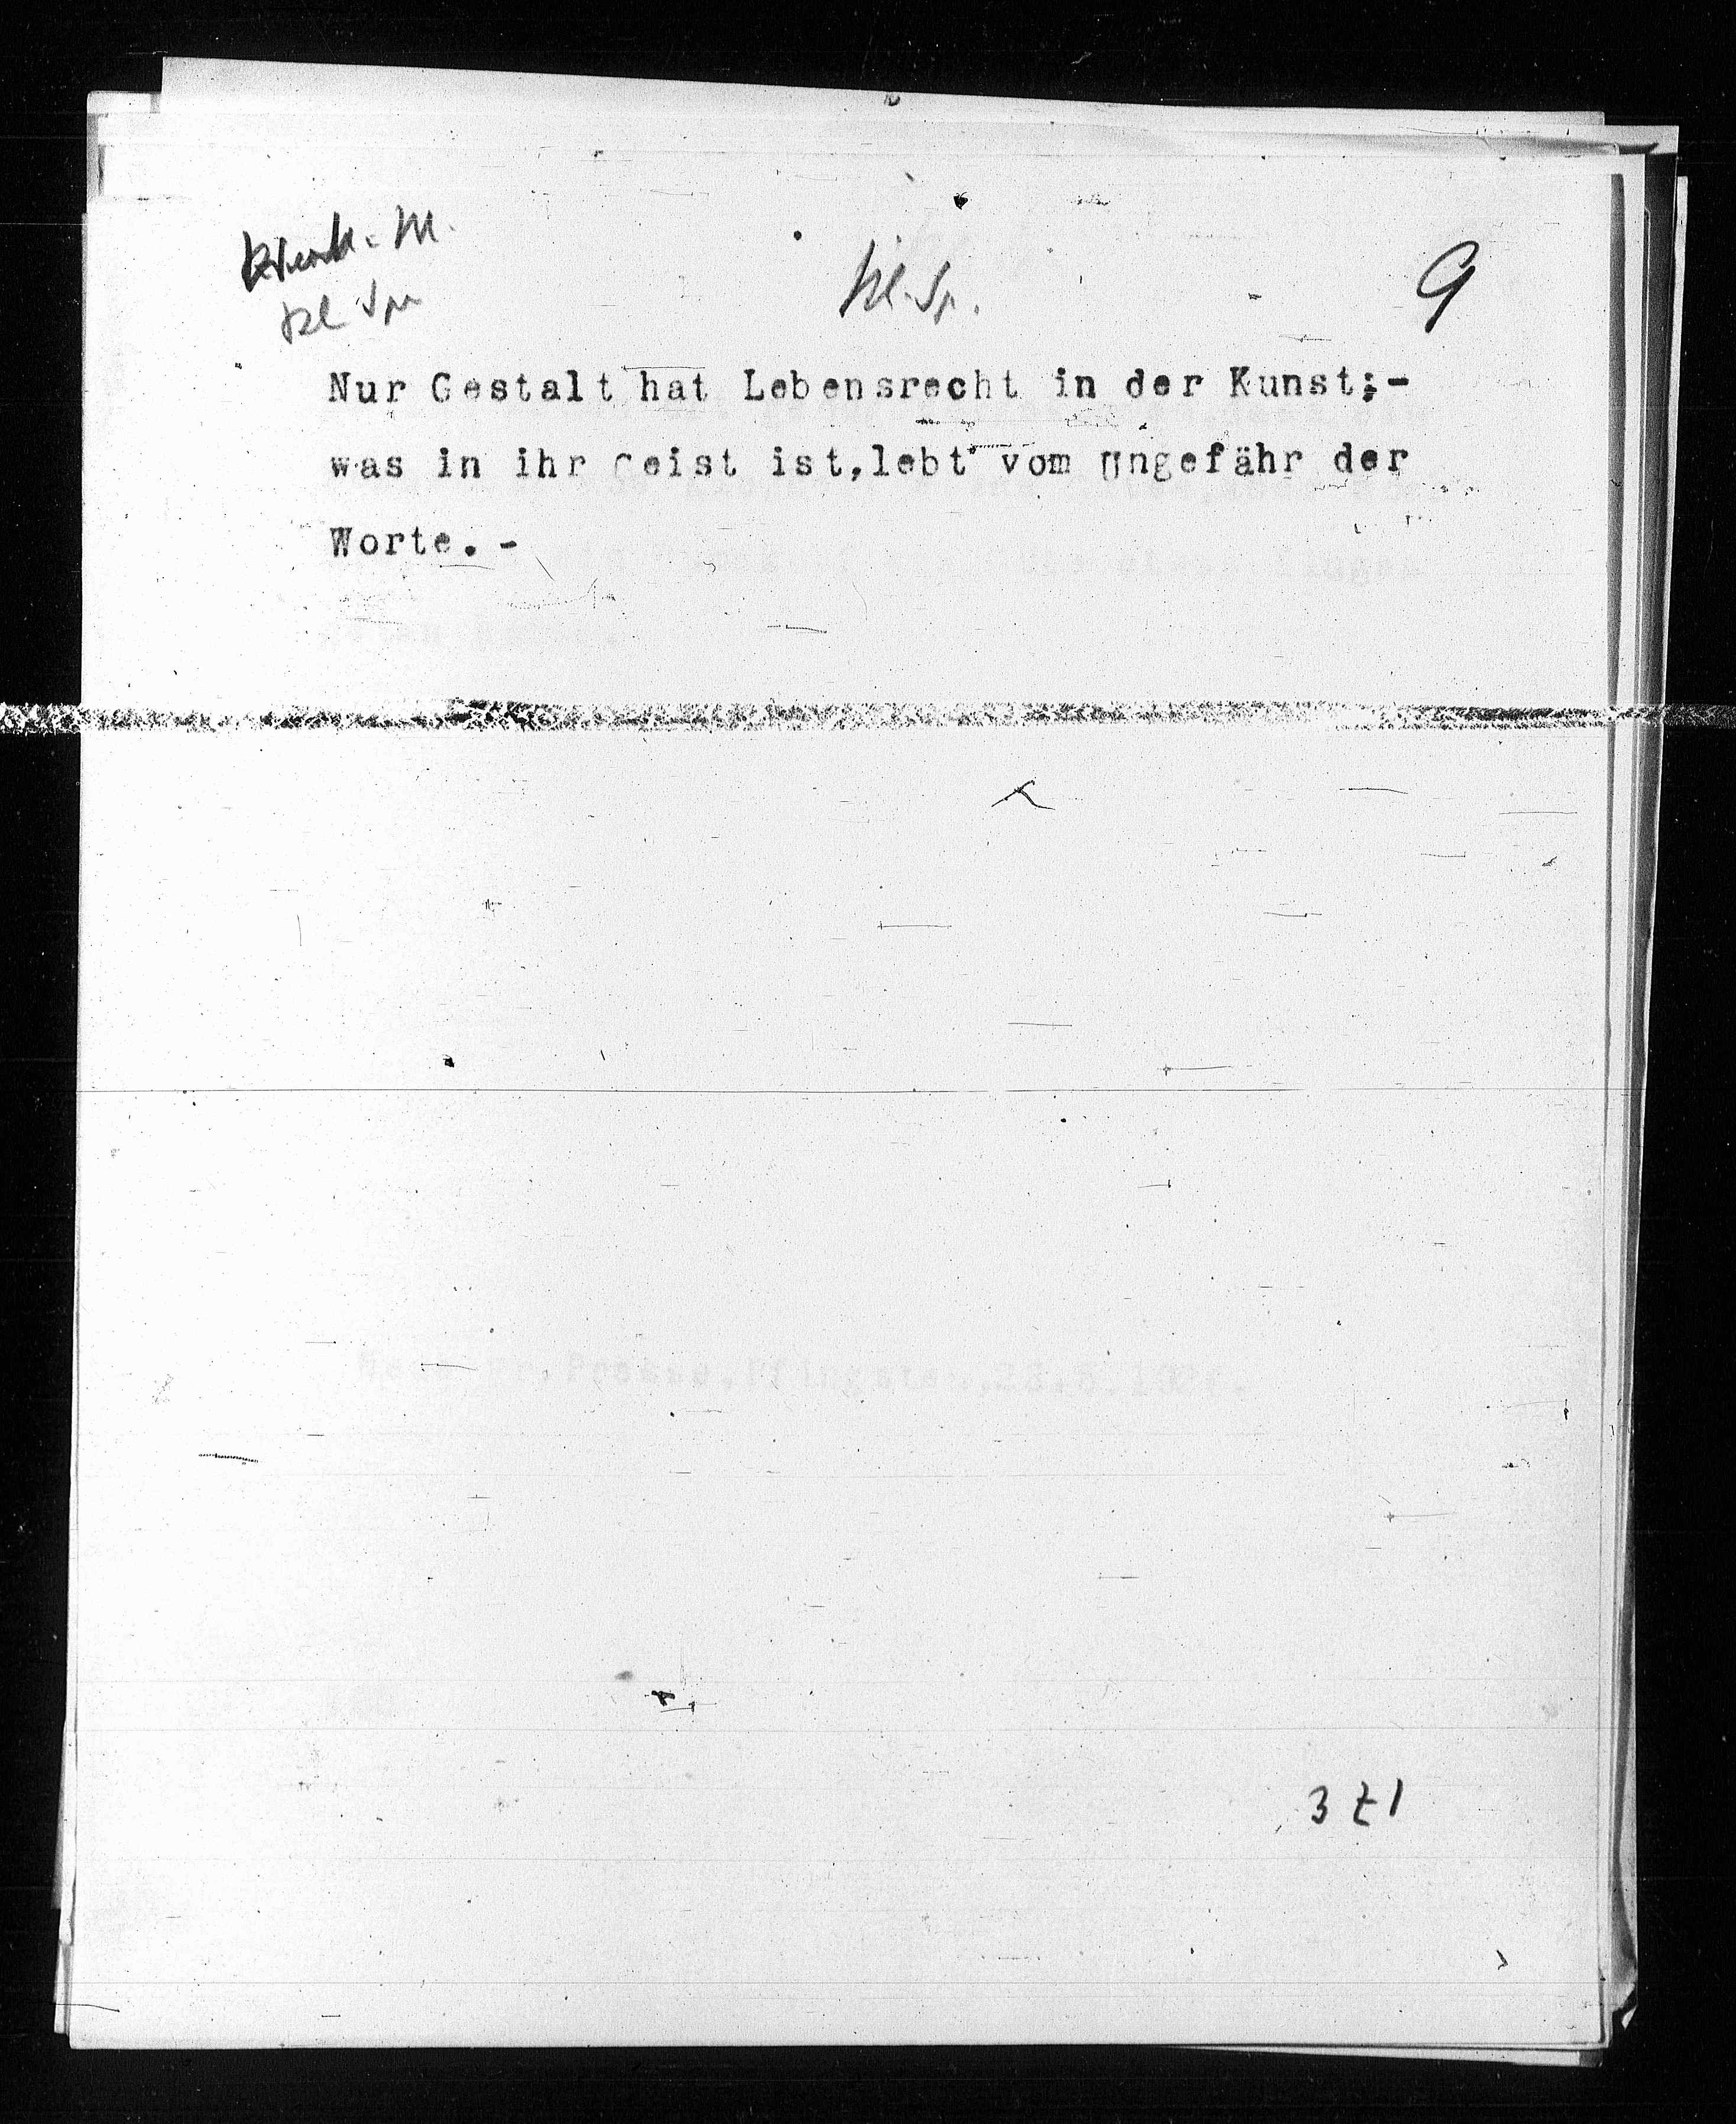 Kl. Sp.
9
Nur Gestalt hat Lebensrecht in der Kunst;-
was in ihr Geist ist,lebt vom Ungefähr der
Worte. -